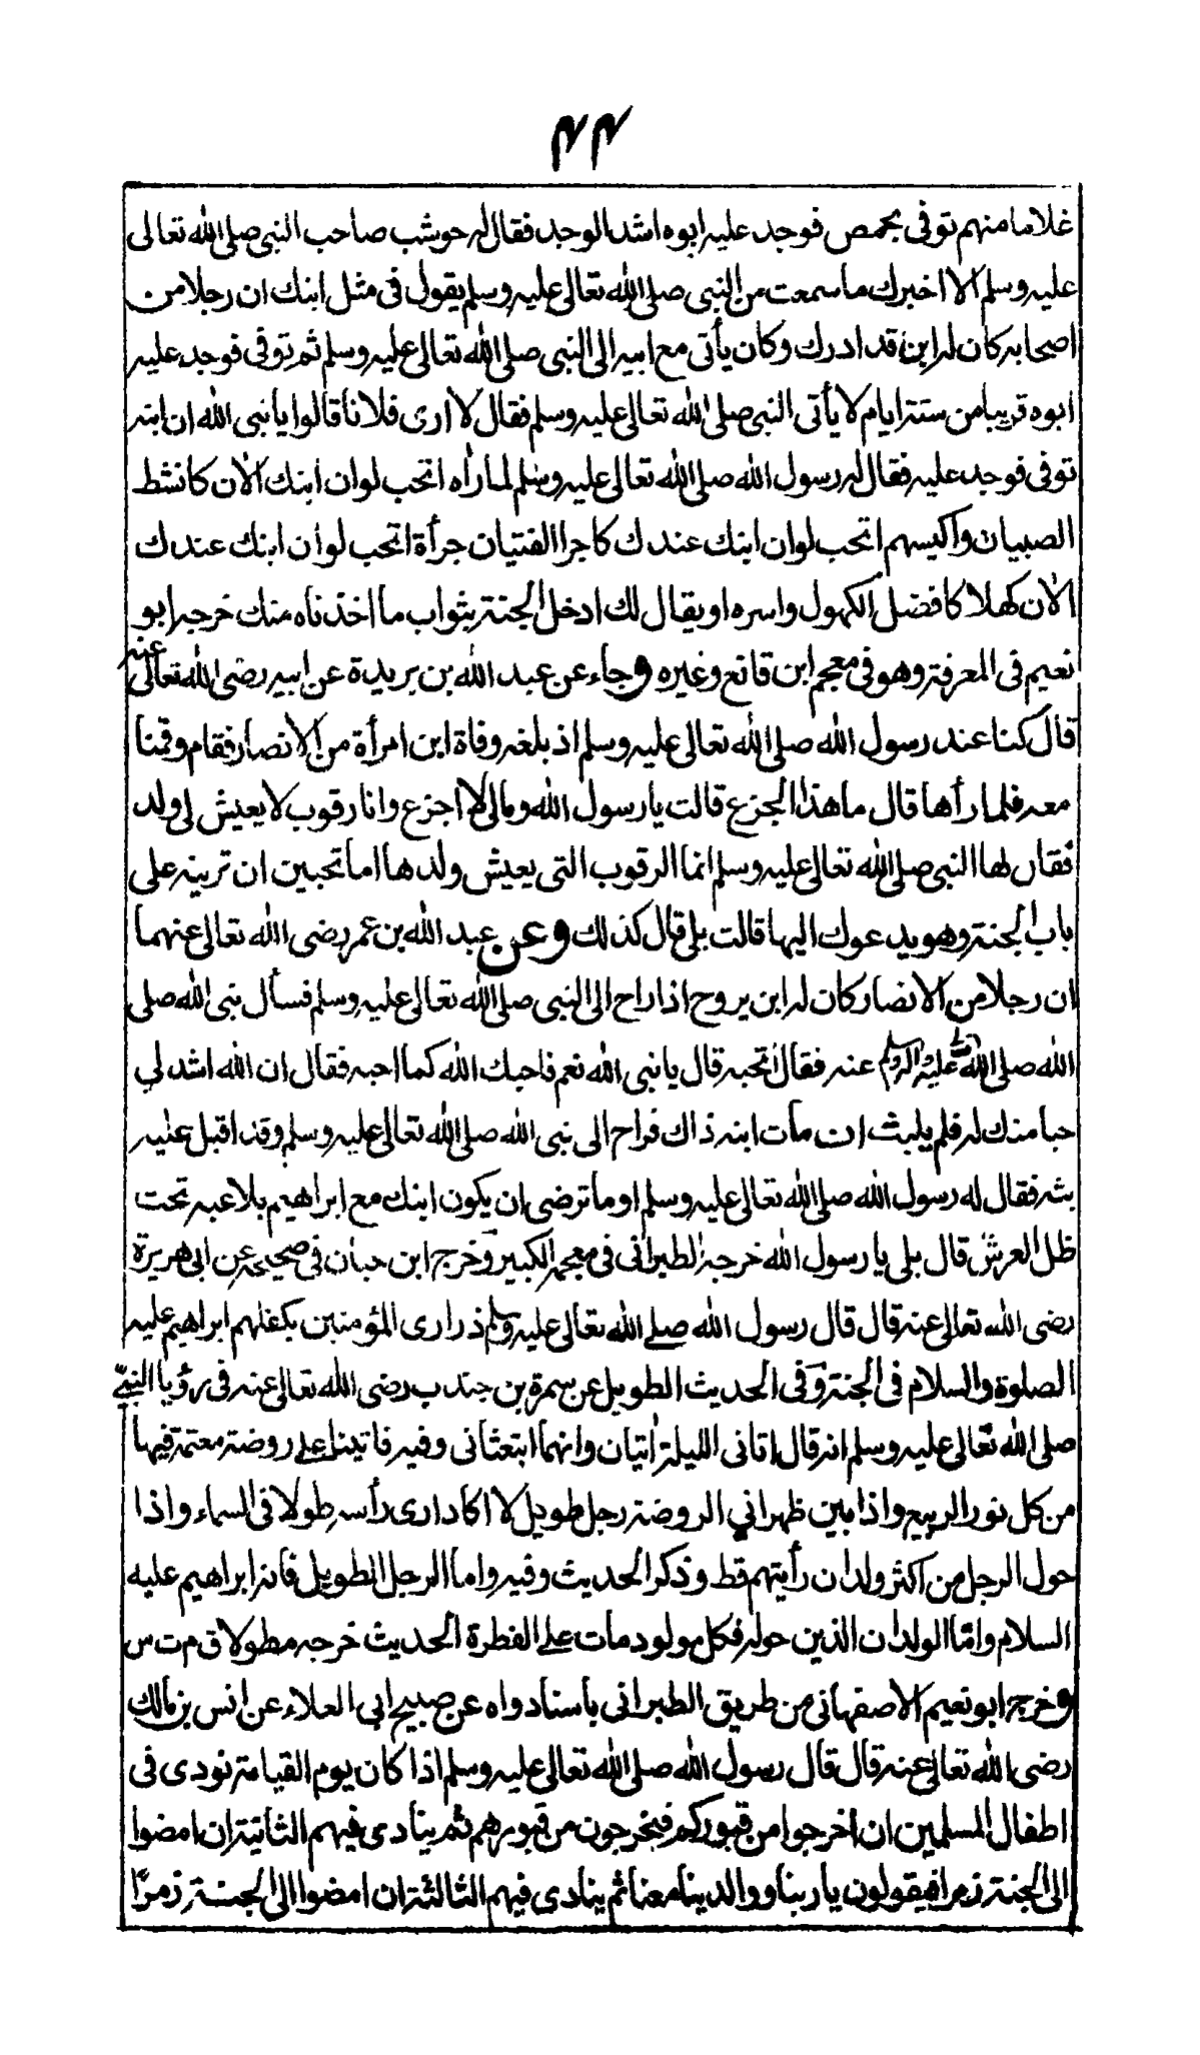 ٤٤
غلاما منهم توفى بحمص فوجد عليه ابوه اشد الوجد فقال له حوشب صاحب النبى صلى الله تعالى
عليه وسلم الا اخبرك ما سمعت من النبى صلى الله تعالى عليه وسلم يقول فى مثل ابنك ان رجلا من
اصحابه كان له ابن قد ادرك وكان يأتى مع ابيه الى النبى صلى الله تعالى عليه وسلم ثم توفى فوجد عليه
ابوه قريبا من ستة ايام لا يأتى النبى صلى الله تعالى عليه وسلم فقال لا ارى فلانا قالوا يا نبى الله ان ابنه
توفى فوجد عليه فقال له رسول الله صلى الله تعالى عليه وسلم لما راٰه اتحب لو ان ابنك الاٰن كانشط
الصبيان واكيسهم اتحب لو ان ابنك عندك كاجرا الفتيان جرأة اتحب لو ان ابنك عندك
الاٰن كهلا كافضل الكهول واسره او يقال لك ادخل الجنة بثواب ما اخذناه منك خرجه ابو
نعيم فى المعرفة وهو فى معجم ابن قانع وغيره وجاء عن عبد الله بن بريدة عن ابيه رضى الله تعالى عنه
قال كنا عند رسول الله صلى الله تعالى عليه وسلم اذ بلغه وفاة ابن امرأة من الانصار فقام وقمنا
معه فلما رأها قال ما هذا الجزع قالت يا رسول الله ومالى لا اجزع وانا رقوب لا يعيش لى ولد
فقال لها النبى صلى الله تعالى عليه وسلم انما الرقوب التى يعيش ولدها اما تحبين ان ترينه على
باب الجنة وهو يدعوك اليها قالت بلى قال كذلك وعن عبد الله بن عمر رضى الله تعالى عنهما
ان رجلا من الانصار كان له ابن يروح اذا راح الى النبى صلى الله تعالى عليه وسلم فسأل نبى الله صلى
الله صلى الله تعالى عليه واله وسلم عنه فقال اتحبه قال يا نبى الله نعم فاحبك الله كما احبه فقال ان الله اشد لي
حبا منك له فلم يلبث ان مات ابنه ذاك فراح الى نبى الله صلى الله تعالى عليه وسلم وقد اقبل عليه
بثه فقال له رسول الله صلى الله تعالى عليه وسلم او ما ترضى ان يكون ابنك مع ابراهيم يلاعبه تحت
ظل العرش قال بلى يا رسول الله خرجه الطبرانى فى معجمه الكبير وخرج ابن حبان فى صحيحه عن ابى هريرة
رضى الله تعالى عنه قال قال رسول الله صلے الله تعالى عليه وسلم ذرارى المؤمنين يكفلهم ابراهيم عليه
الصلوة والسلام فى الجنة وفى الحديث الطويل عن سمرة بن جندب رضى الله تعالى عنه فى رؤيا النبىّ
صلى الله تعالى عليه وسلم انه قال اتانى الليلة اٰتيان وانهما ابتعثانى وفيه فاتينا علے روضة معتمة فيها
من كل نور الربيع واذا بين ظهراني الروضة رجل طويل لا اكاد ارى رأسه طولا فى السماء واذا
حول الرجل من اكثر ولدان رأيتهم قط وذكر الحديث وفيه واما الرجل الطويل فانه ابراهيم عليه
السلام وامّا الولدان الذين حوله فكل مولود مات علے الفطرة الحديث خرجه مطولا ق م ت س
وخرج ابو نعيم الاصفهانى من طريق الطبرانى باسناد واه عن صبيح ابى العلاء عن انس بن مالك
رضى الله تعالى عنه قال قال رسول الله صلى الله تعالى عليه وسلم اذا كان يوم القيامة نودى فى
اطفال المسلمين ان اخرجوا من قبوركم فيخرجون من قبورهم ثم ينادى فيهم الثانية ان امضوا
الى الجنة زمرا فيقولون يا ربنا ووالدينا معنا ثم ينادى فيهم الثالثة ان امضوا الى الجنة زمرًا